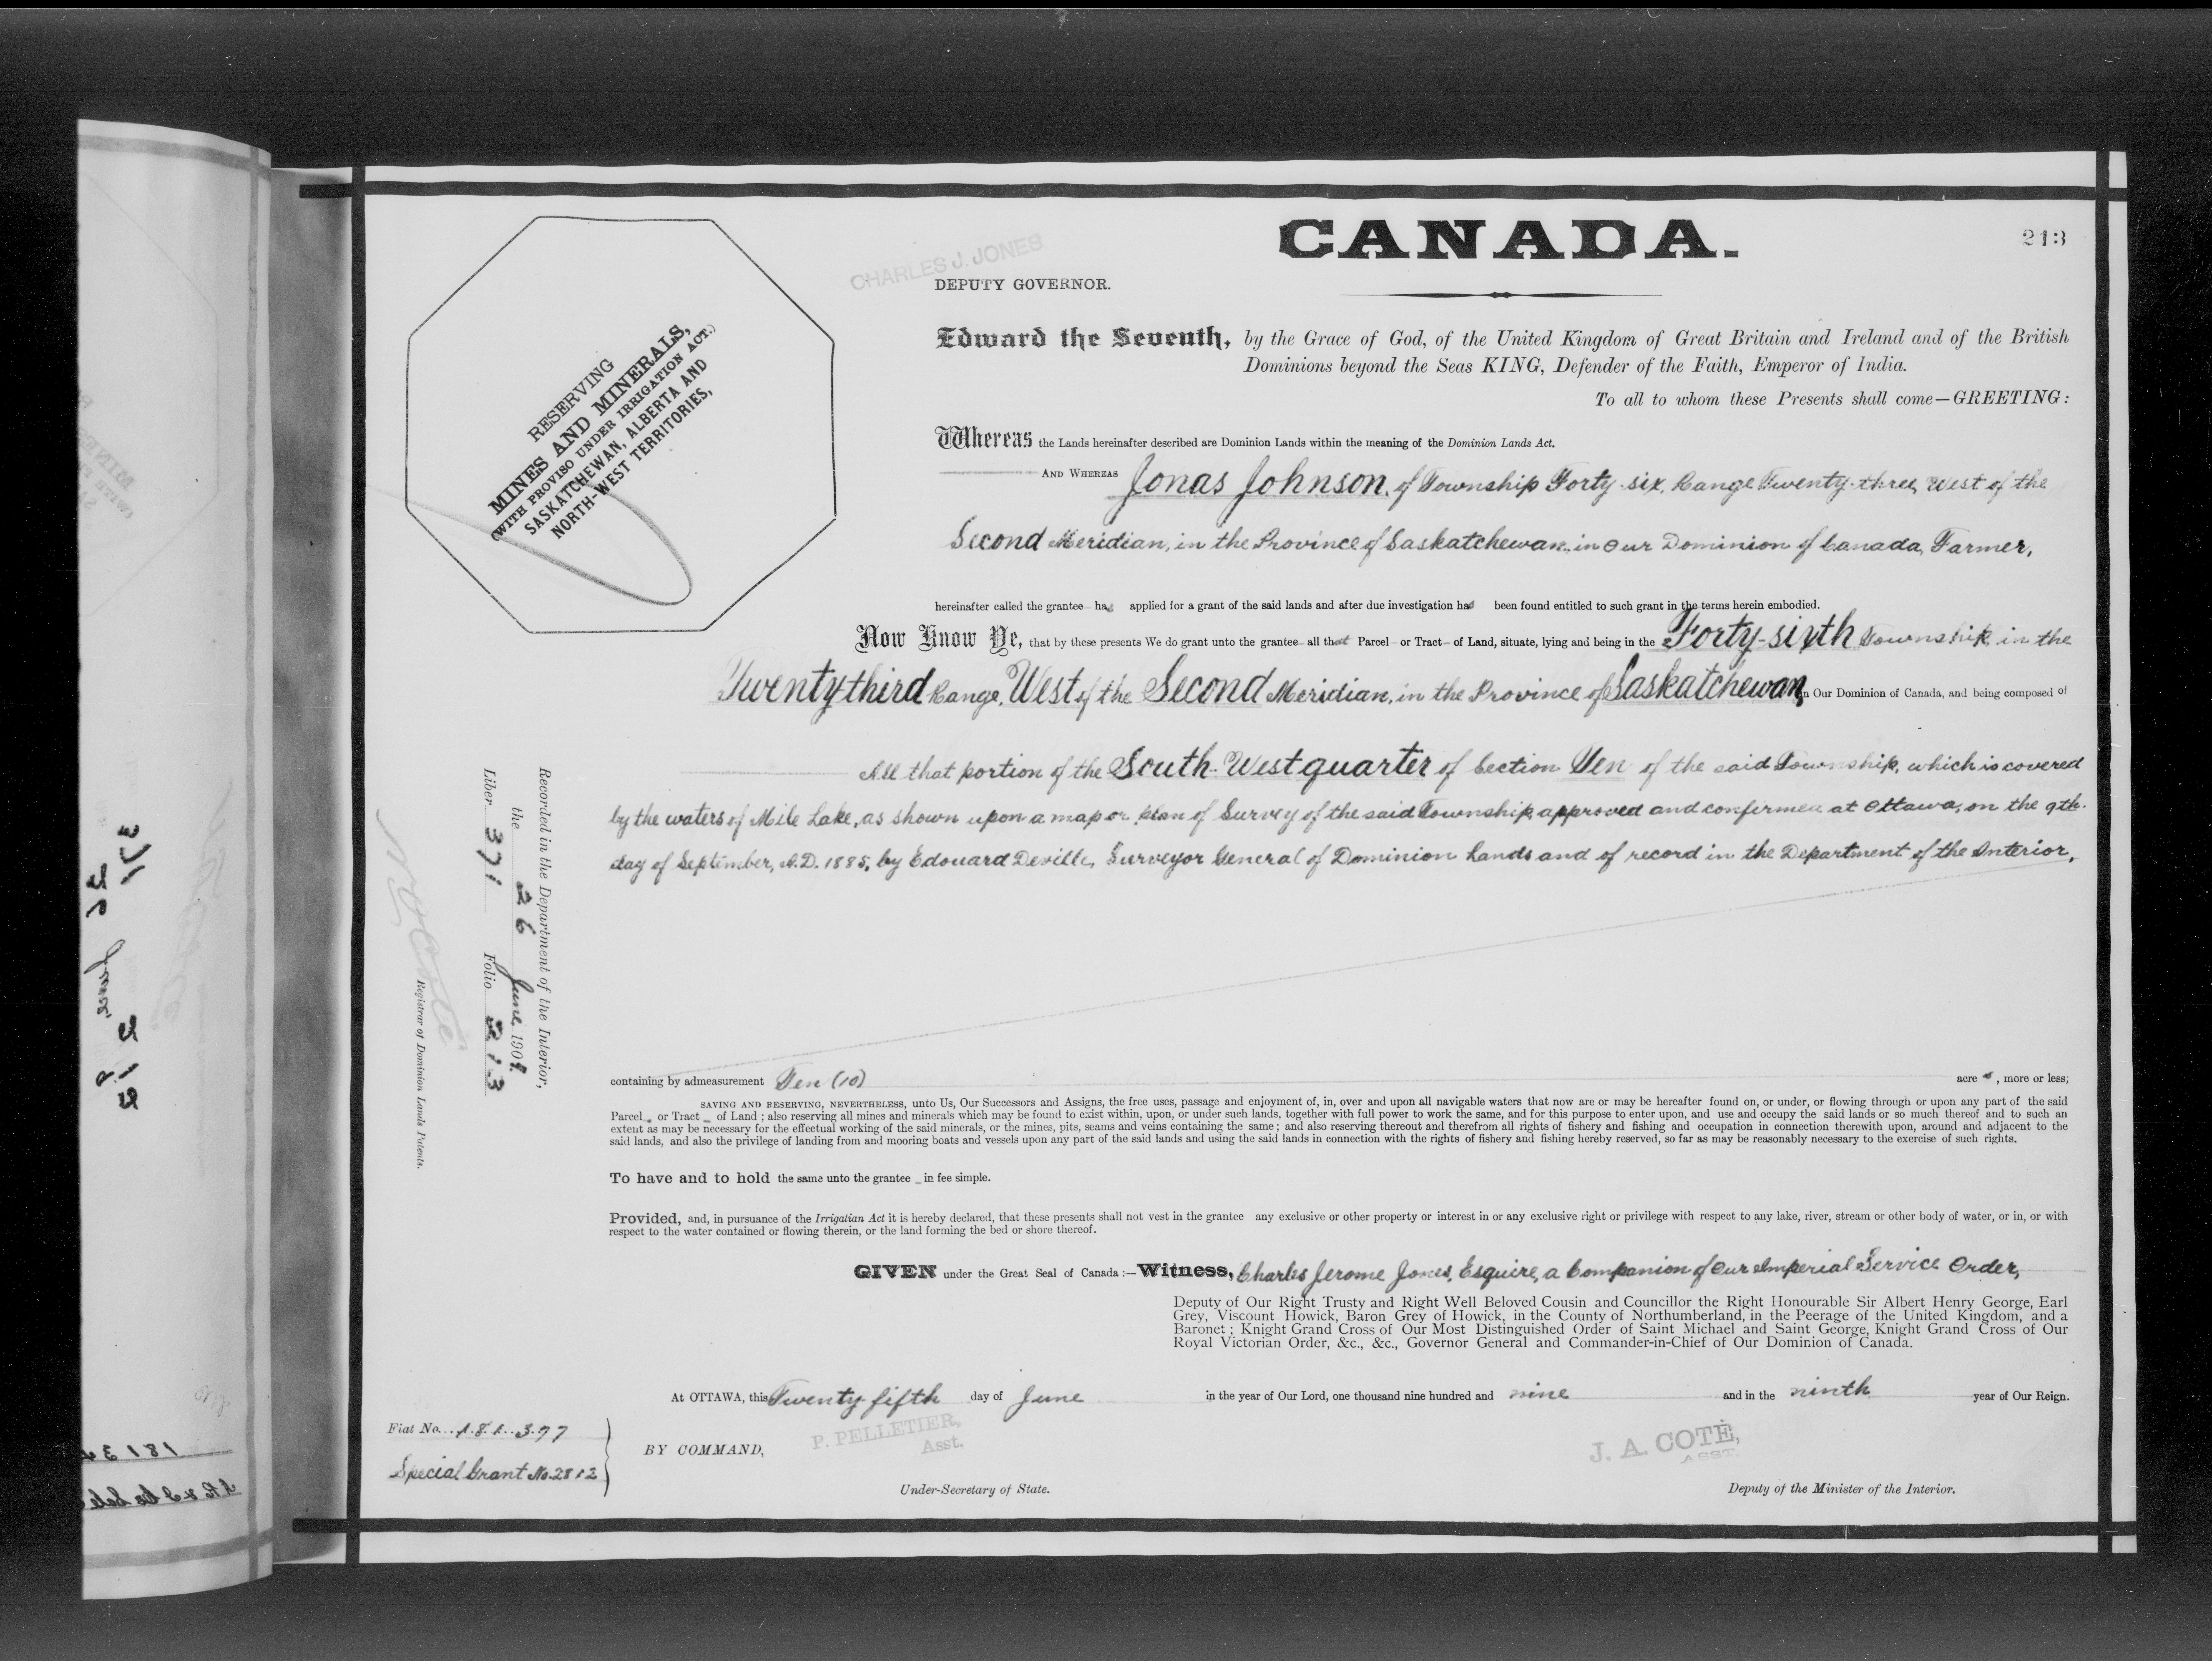 CANADA.
213
CHARLES J. JONES
DEPUTY GOVERNOR.
RESERVING
MINES AND MINERALS,
(WITH PROVISO UNDER IRRIGATION ACT.)
SASKATCHEWAN, ALBERTA AND
NORTH-WEST TERRITORIES,
Edward the Seventh, by the Grace of God, of the United Kingdom of Great Britain and Ireland and of the British
Dominions beyond the Seas KING, Defender of the Faith, Emperor of India.
To all to whom these Presents shall come—GREETING:
Whereas the Lands hereinafter described are Dominion Lands within the meaning of the Dominion Lands Act.
AND WHEREAS Jonas Johnson, of Township Forty-six, Range Twenty-three, West of the
Second Meridian, in the Province of Saskatchewan, in Our Dominion of Canada, Farmer,
hereinafter called the grantee has applied for a grant of the said lands and after due investigation has been found entitled to such grant in the terms herein embodied.
Now Know Ye, that by these presents We do grant unto the grantee all that Parcel or Tract of Land, situate, lying and being in the Forty-sixth Township, in the
Twenty third Range, West of the Second Meridian, in the Province of Saskatchewan, in Our Dominion of Canada, and being composed of
All that portion of the South-West quarter of Section Ten of the said Township, which is covered
by the waters of Mile Lake, as shown upon a map or plan of Survey of the said Township, approved and confirmed at Ottawa, on the 9th.
day of September, A.D. 1885, by Edouard Deville, Surveyor General of Dominion Lands and of record in the Department of the Interior,
containing by admeasurement Ten (10) acres, more or less;
SAVING AND RESERVING, NEVERTHELESS, unto Us, Our Successors and Assigns, the free uses, passage and enjoyment of, in, over and upon all navigable waters that now are or may be hereafter found on, or under, or flowing through or upon any part of the said
Parcel or Tract of Land; also reserving all mines and minerals which may be found to exist within, upon, or under such lands, together with full power to work the same, and for this purpose to enter upon, and use and occupy the said lands or so much thereof and to such an
extent as may be necessary for the effectual working of the said minerals, or the mines, pits, seams and veins containing the same; and also reserving thereout and therefrom all rights of fishery and fishing and occupation in connection therewith upon, around and adjacent to the
said lands, and also the privilege of landing from and mooring boats and vessels upon any part of the said lands and using the said lands in connection with the rights of fishery and fishing hereby reserved, so far as may be reasonably necessary to the exercise of such rights.
To have and to hold the same unto the grantee in fee simple.
Provided, and, in pursuance of the Irrigatian Act it is hereby declared, that these presents shall not vest in the grantee any exclusive or other property or interest in or any exclusive right or privilege with respect to any lake, river, stream or other body of water, or in, or with
respect to the water contained or flowing therein, or the land forming the bed or shore thereof.
GIVEN under the Great Seal of Canada:—Witness, Charles Jerome Jones, Esquire, a Companion of Our Imperial Service Order,
Deputy of Our Right Trusty and Right Well Beloved Cousin and Councillor the Right Honourable Sir Albert Henry George, Earl
Grey, Viscount Howick, Baron Grey of Howick, in the County of Northumberland, in the Peerage of the United Kingdom, and a
Baronet; Knight Grand Cross of Our Most Distinguished Order of Saint Michael and Saint George, Knight Grand Cross of Our
Royal Victorian Order, &c., &c., Governor General and Commander-in-Chief of Our Dominion of Canada.
At OTTAWA, this Twenty fifth day of June in the year of Our Lord, one thousand nine hundred and nine and in the ninth year of Our Reign.
BY COMMAND,
P. PELLETIER,
Asst.
Under-Secretary of State.
J. A. COTÉ,
ASST.
Deputy of the Minister of the Interior.
Fiat No. 181377
Special Grant No. 2812
Recorded in the Department of the Interior,
the 26 June 1909.
Liber 371 Folio 213
Registrar of Dominion Lands Patents.